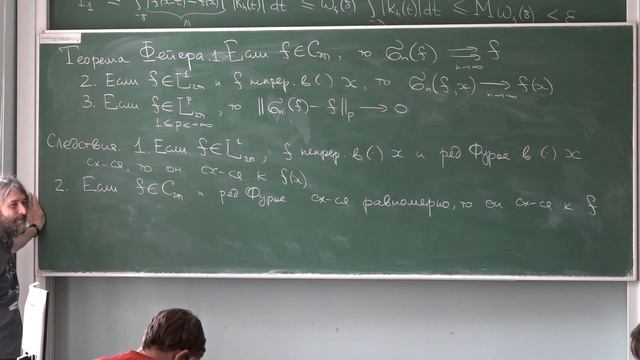 I₁ = ∫ |f(x-t)-f(x)| |Kₙ(t)| dt ≤ ω_f(δ) ∫ |Kₙ(t)| dt ≤ M ω_f(δ) < ε
Теорема Фейера. 1. Если f∈C₂π, то σₙ(f) ⇉ f
n→∞
2. Если f∈L¹₂π и f непрер. в (·) x, то σₙ(f,x) → f(x)
n→∞
3. Если f∈Lᵖ₂π, то ‖σₙ(f) - f‖ₚ → 0
1≤p<+∞
Следствия. 1. Если f∈L¹₂π, f непрер. в (·) x и ряд Фурье в (·) x
сх-ся, то он сх-ся к f(x)
2. Если f∈C₂π и ряд Фурье сх-ся равномерно, то он сх-ся к f